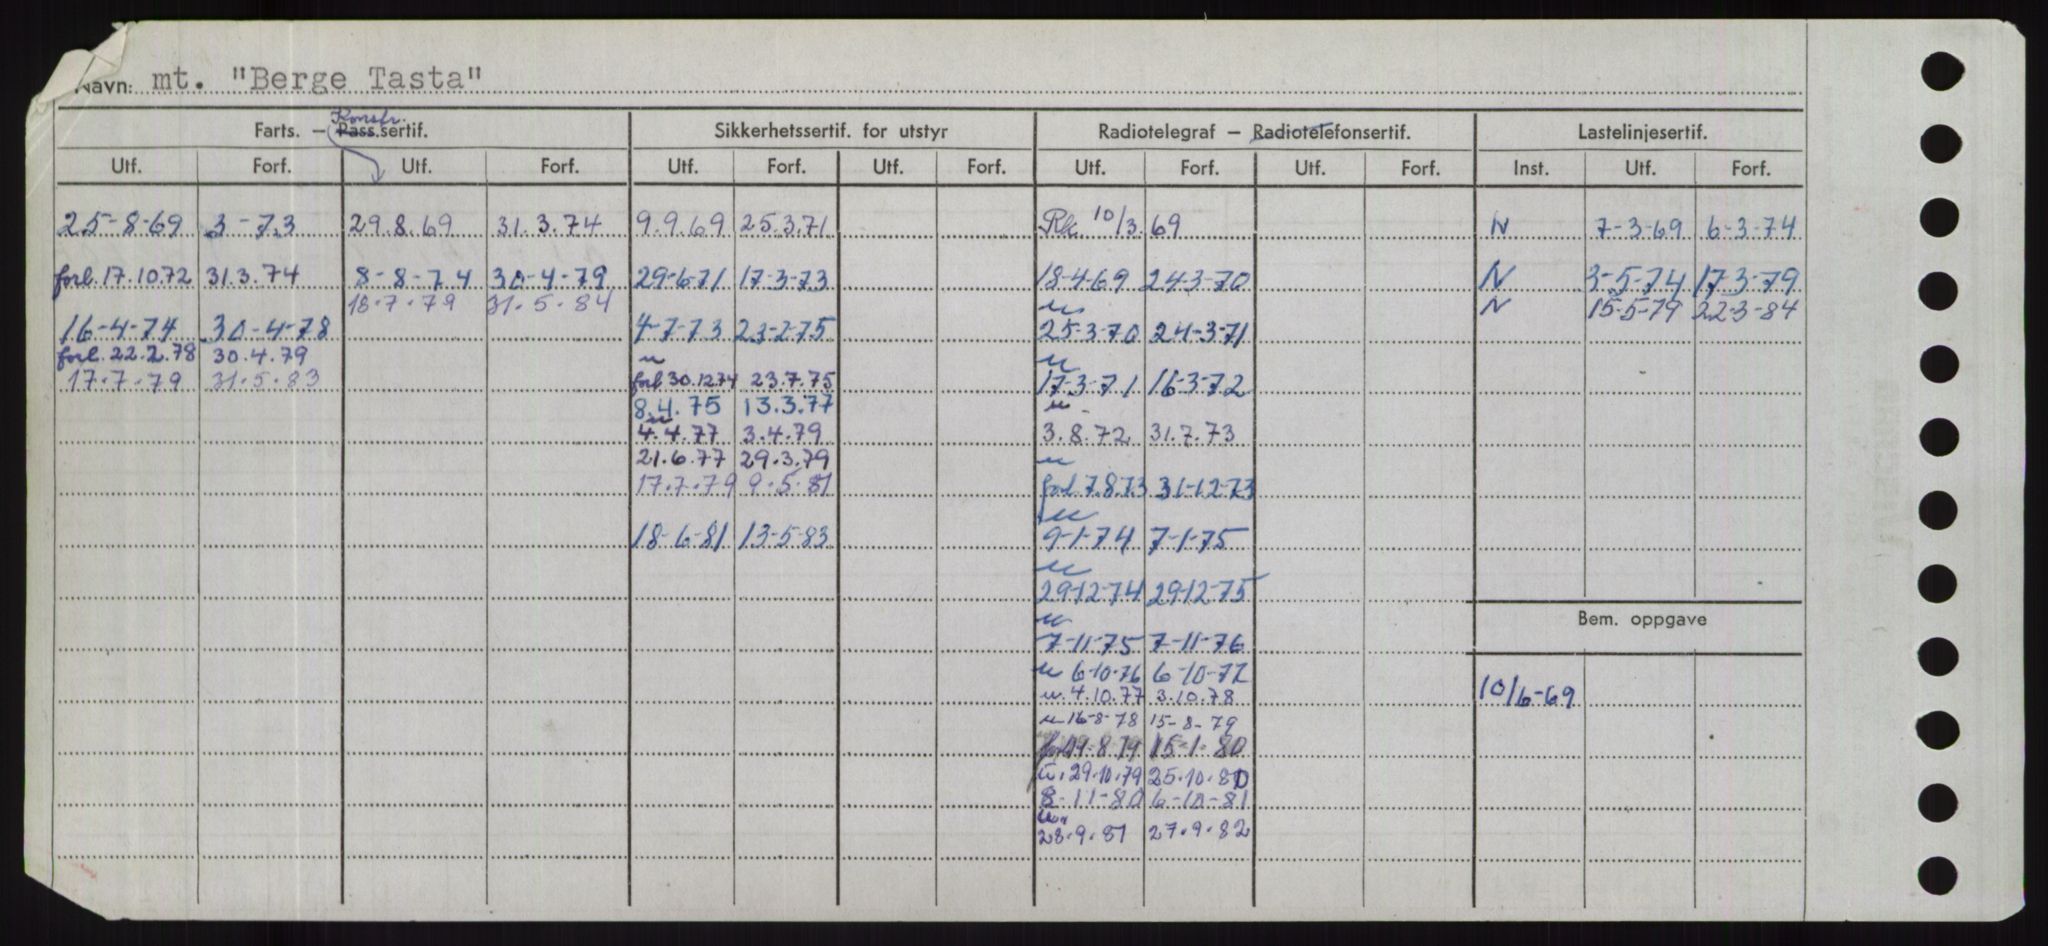 Navn: mt. "Berge Tasta"
Konstr.
Farts. – Pass.sertif. Sikkerhetssertif. for utstyr Radiotelegraf – Radiotelefonsertif. Lastelinjesertif.
Utf. Forf. Utf. Forf. Utf. Forf. Utf. Forf. Utf. Forf. Utf. Forf. Inst. Utf. Forf.
25-8-69 3-73 29.8.69 31.3.74 9.9.69 25.3.71 Rk. 10/3.69 N 7-3-69 6-3-74
forl. 17.10.72 31.3.74 8-8-74 30-4-79 29-6-71 17-3-73 18-4-69 24-3-70 N 3-5-74 17.3-79
18.7.79 31.5.84 u N 15-5-79 22-3-84
16-4-74 30-4-78 4-7-73 23-2-75 25-3-70 24-3-71
forl. 22.2.78 30.4.79 u u
17.7.79 31.5.83 forl 30.12.74 23.7.75 17-3-71 16-3-72
8.4.75 13.3.77 u
u 4.4.77 3.4.79 3.8.72 31.7.73
21.6.77 29.3.79 u
17.7.79 9.5.81 forl 7.8.73 31-12-73
u
18-6-81 13-5-83 9-1-74 7-1-75
u
29-12-74 29-12-75
u
Bem. oppgave
7-11-75 7-11-76
u 6-10-76 6-10-77
u. 4.10.77 3.10.78 10/6-69
u 16-8-78 15-8-79
forl 19.8.79 15-1-80
u. 29.10.79 25.10.80
8-11-80 6-10-81
u
28.9.81 27.9.82